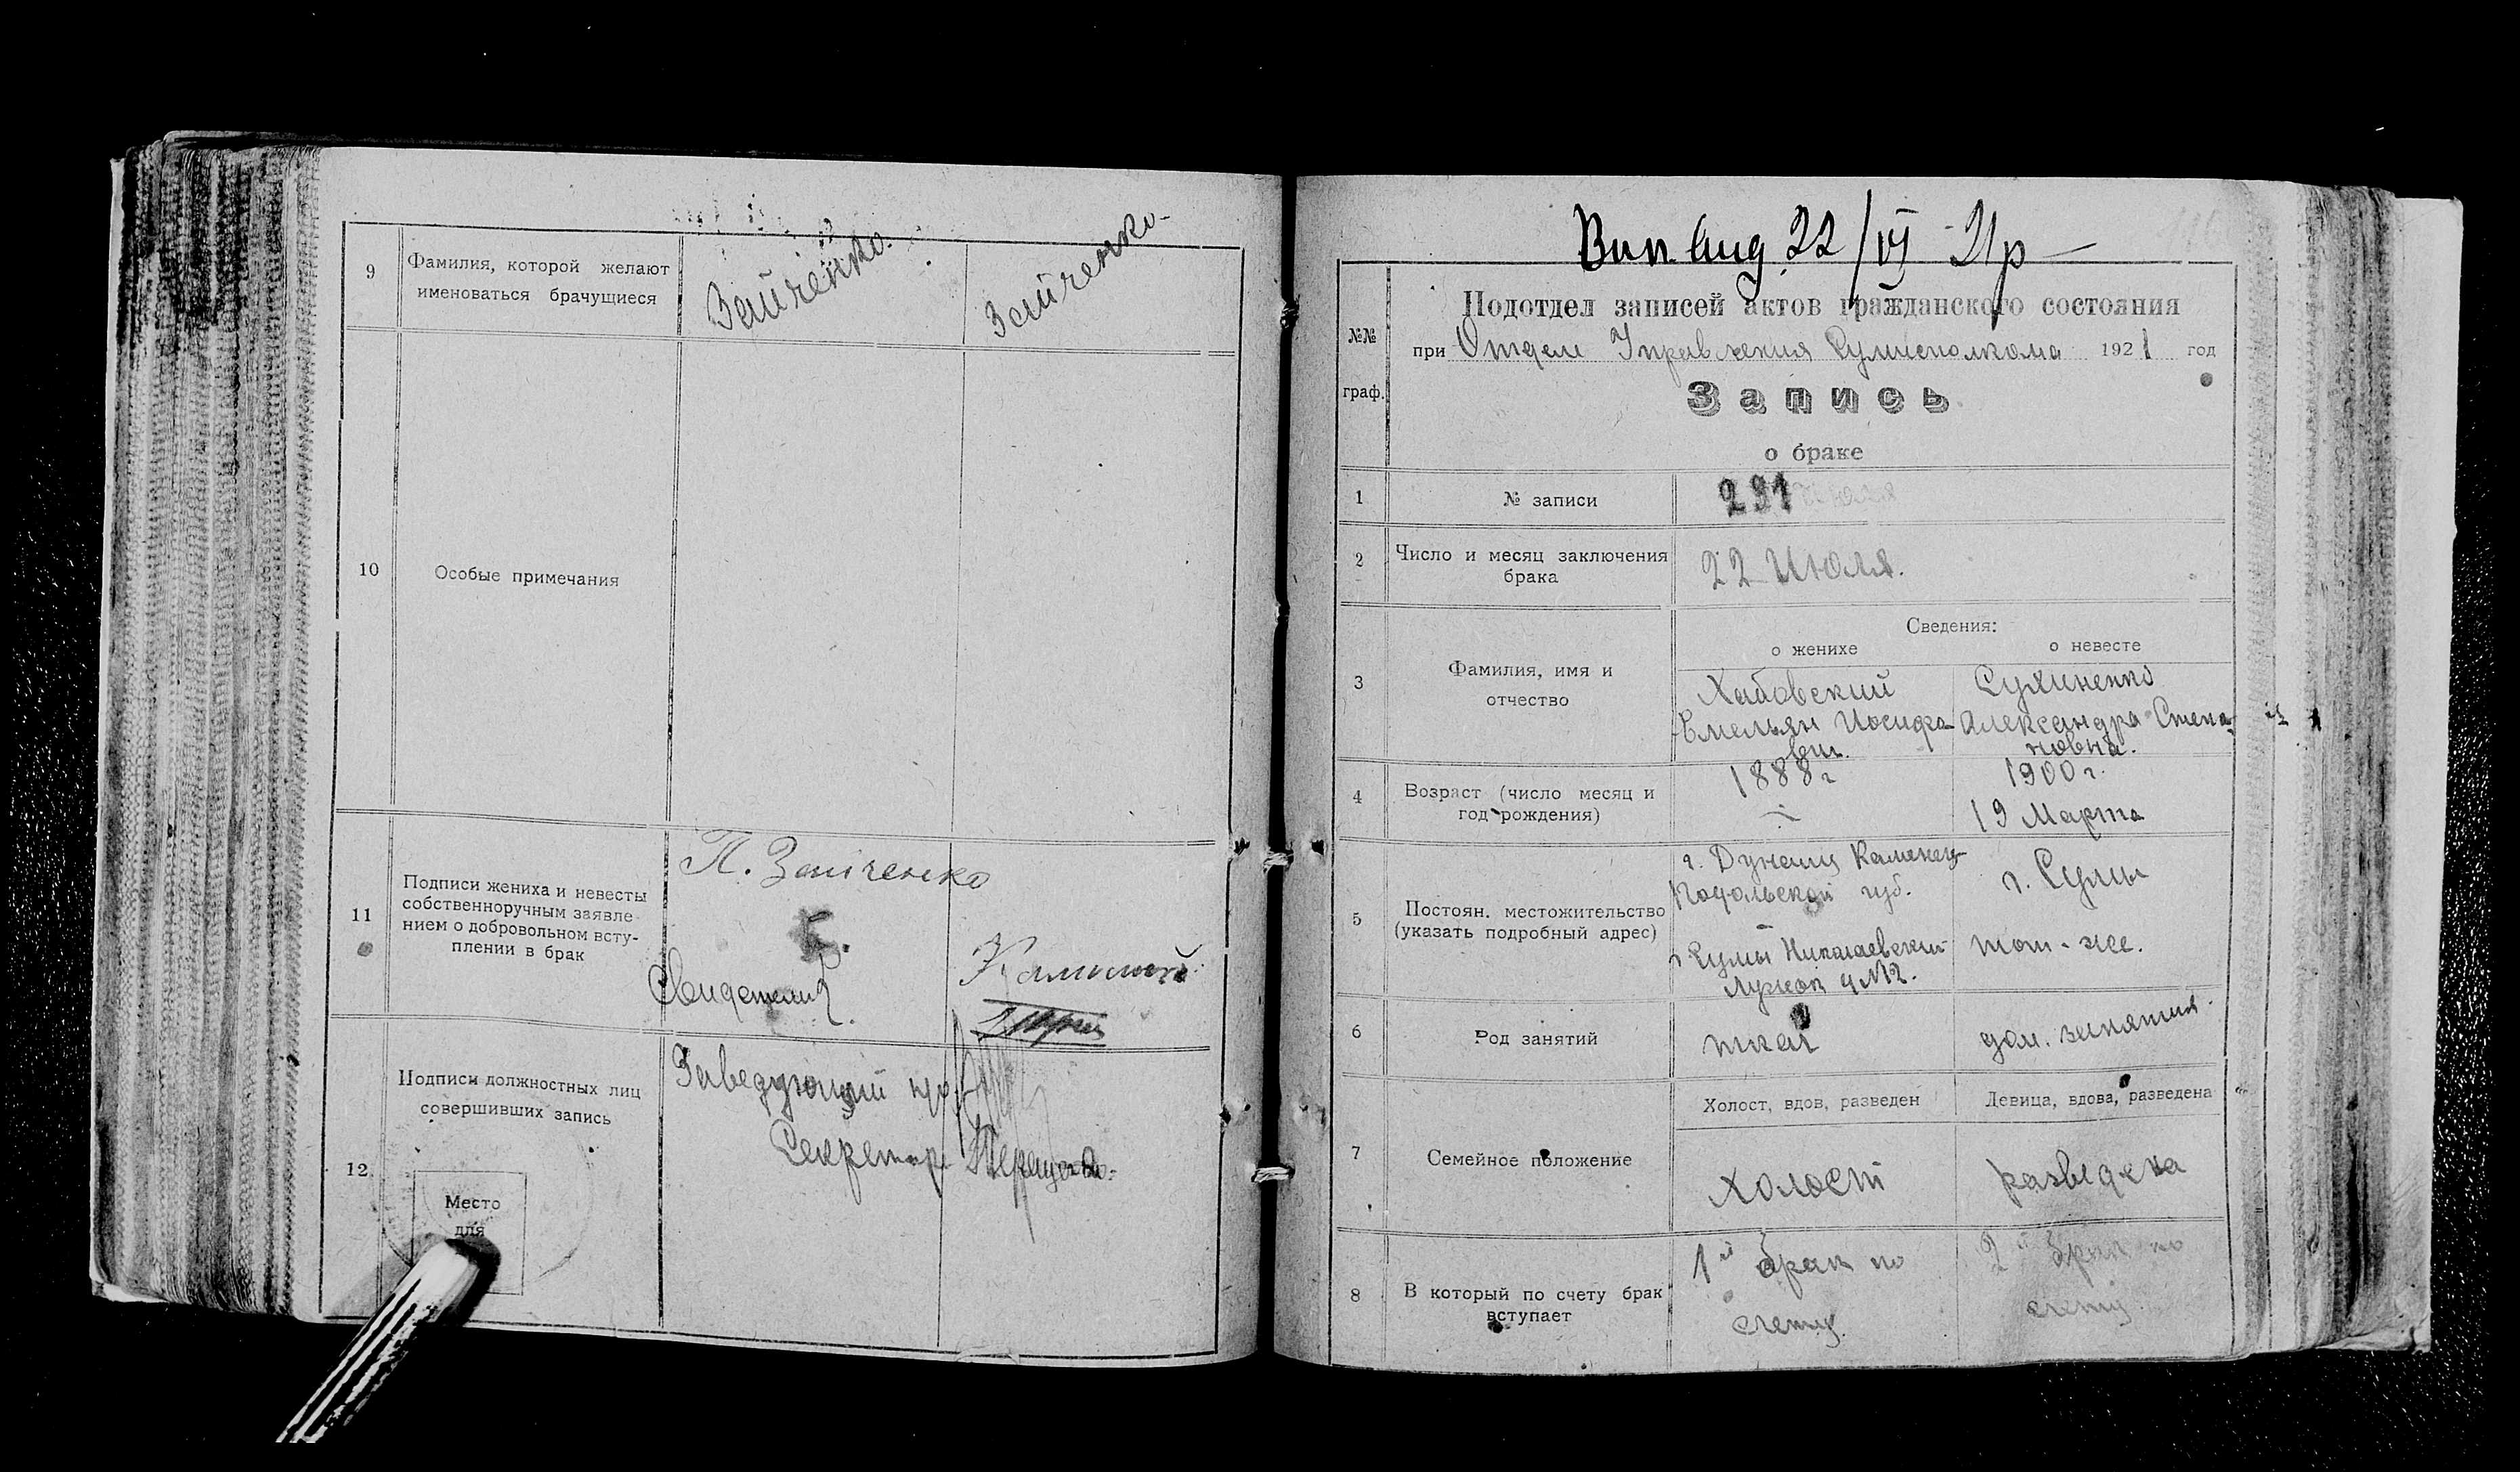 9
Фамилия, которой желают
именоваться брачущиеся
Зайченко.
Зайченко
10
Особые примечания
11
Подписи жениха и невесты
собственноручным заявле-
нием о добровольном всту-
плении в брак
П. Зайченко
Свидетели
12
Подписи должностных лиц
совершивших запись
Место
для
Заведующий
Секретарь
22/VII 21р
№№
граф.
Подотдел записей актов гражданского состояния
при Отделе Управления Сумисполкома 1921 год
Запись
о браке
1
№ записи
291
2
Число и месяц заключения
брака
22 Июля.
Сведения:
о женихе
о невесте
3
Фамилия, имя и
отчество
Хабовский
Емельян Иосифо
вич.
Сухиненко
Александра Степа
новна.
4
Возраст (число месяц и
год рождения)
1888 г
1900 г.
19 Марта
5
Постоян. местожительство
(указать подробный адрес)
г. Дунаец Каменец
Подольской губ.
г Сумы Николаевский
Лужок д №2.
г. Сумы
тот-же.
6
Род занятий
ткач
дом. занятия.
7
Семейное положение
Холост, вдов, разведен
Девица, вдова, разведена
Холост
разведена
8
В который по счету брак
вступает
1й брак по
счету.
2й брак по
счету.